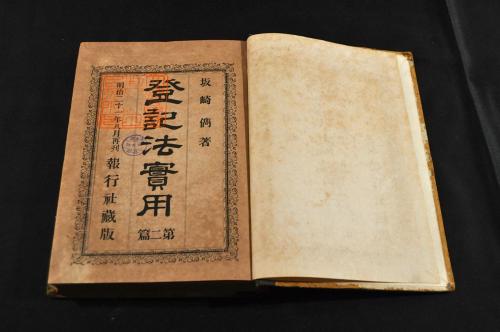 坂崎〓著
登記法實用
第二篇
明治二十一年八月再刊
報行社藏版